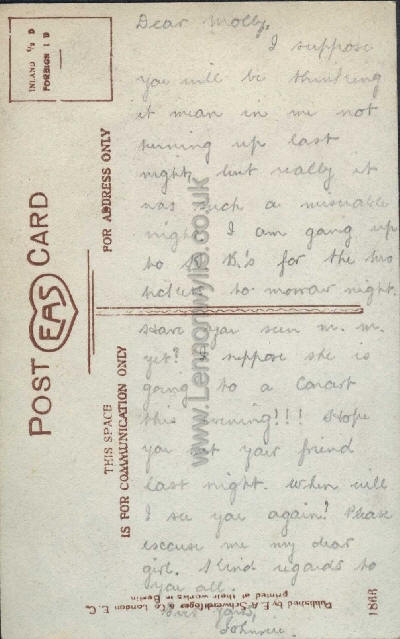 Dear Molly,
I suppose
you will be thinking
it mean in me not
turning up last
night, but really it
was such a miserable
night. I am going up
to B.'s for the two
tickets to-morrow night.
Have you seen M. M.
yet? I suppose she is
going to a Concert
this evening!!! Hope
you met your friend
last night. When will
I see you again? Please
excuse me my dear
girl. Kind regards to
you all.
Yours,
Johnnie.
INLAND ½ D
FOREIGN 1 D
FOR ADDRESS ONLY
POST EAS CARD
THIS SPACE
IS FOR COMMUNICATION ONLY
www.Lennonwylie.co.uk
Published by E. A. Schwerdtfeger & Co. London E. C.
printed at their works in Berlin
1866